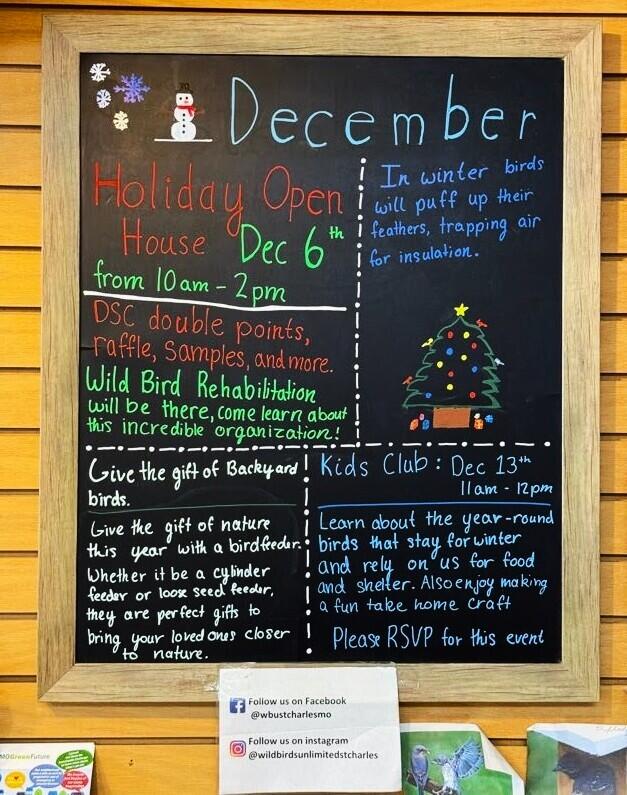 December
Holiday Open
House Dec 6th
from 10am - 2pm
DSC double points,
raffle, Samples, and more.
Wild Bird Rehabilitation
will be there, come learn about
this incredible organization!
In winter birds
will puff up their
feathers, trapping air
for insulation.
Give the gift of Backyard
birds.
Give the gift of nature
this year with a birdfeeder.
Whether it be a cylinder
feeder or loose seed feeder,
they are perfect gifts to
bring your loved ones closer
to nature.
Kids Club: Dec 13th
11am - 12pm
Learn about the year-round
birds that stay for winter
and rely on us for food
and shelter. Also enjoy making
a fun take home craft
Please RSVP for this event
Follow us on Facebook
@wbustcharlesmo
Follow us on instagram
@wildbirdsunlimitedstcharles
MOGreenFuture